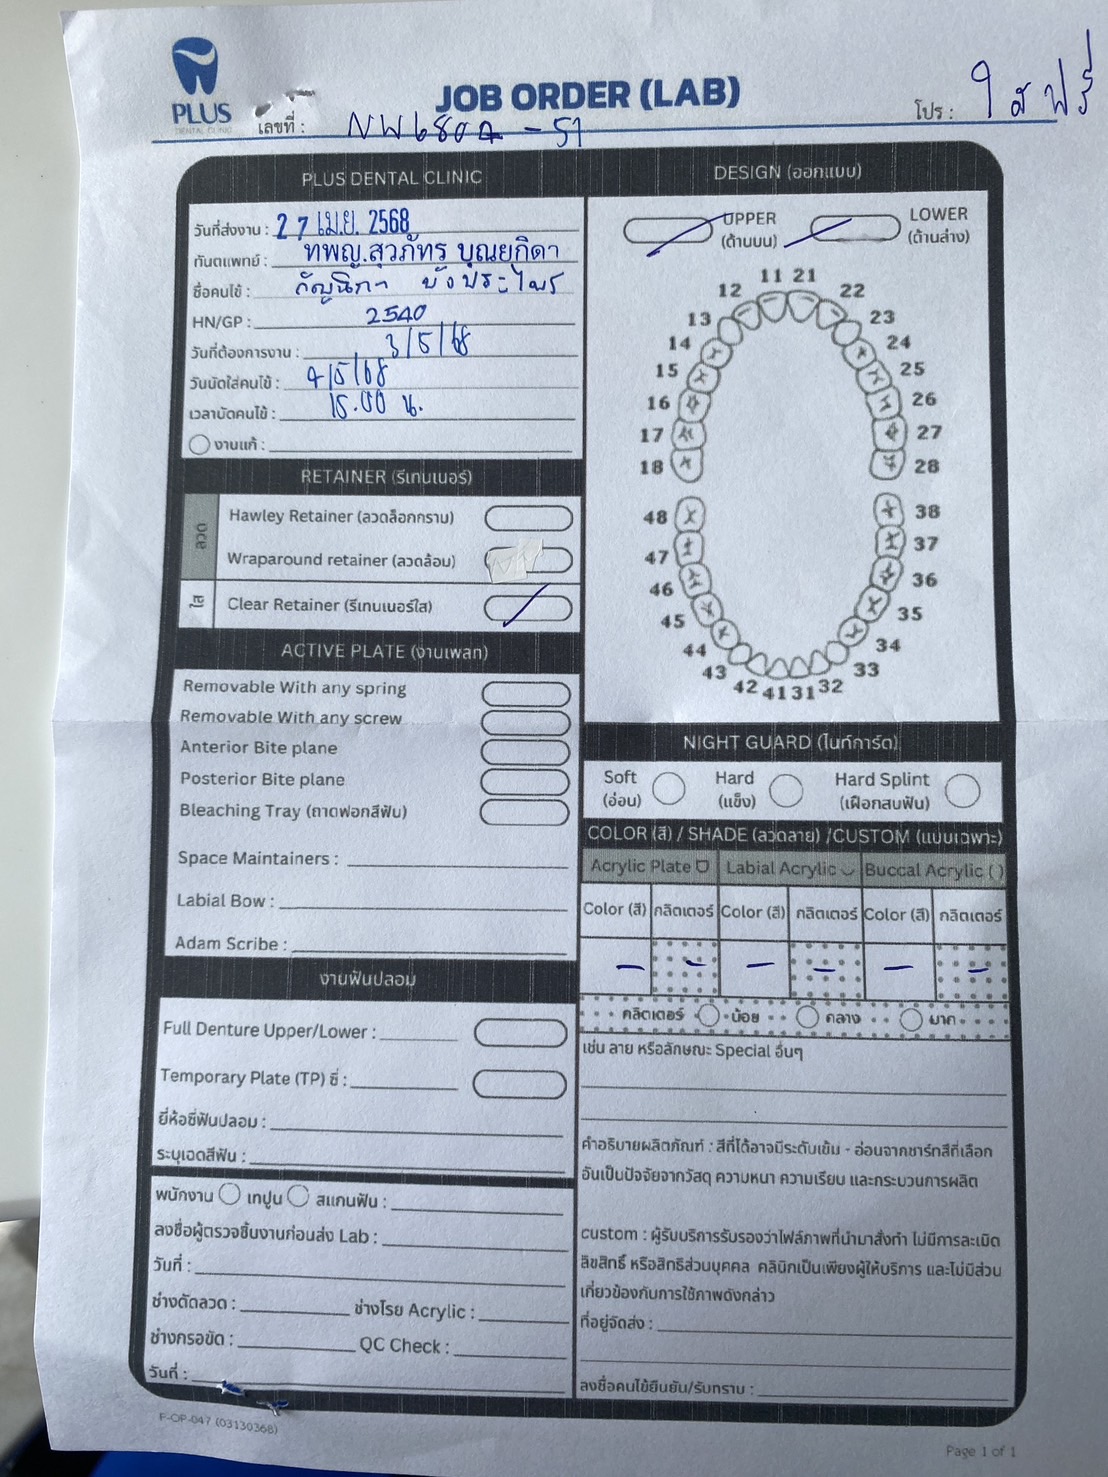 PLUS
DENTAL CLINIC
JOB ORDER (LAB)
เลขที่ : NW6804-51
โปร : ใสฟรี
PLUS DENTAL CLINIC
วันที่ส่งงาน : 27 เม.ย. 2568
ทันตแพทย์ : ทพญ.สุวภัทร บุณยกิดา
ชื่อคนไข้ :
HN/GP : 2540
วันที่ต้องการงาน : 3/5/68
วันนัดใส่คนไข้ : 4/5/68
เวลานัดคนไข้ : 15.00 น.
งานแก้ :
RETAINER (รีเทนเนอร์)
ลวด
Hawley Retainer (ลวดล็อกกราม)
Wraparound retainer (ลวดล้อม)
ใส
Clear Retainer (รีเทนเนอร์ใส)
ACTIVE PLATE (งานเพลท)
Removable With any spring
Removable With any screw
Anterior Bite plane
Posterior Bite plane
Bleaching Tray (ถาดฟอกสีฟัน)
Space Maintainers :
Labial Bow :
Adam Scribe :
งานฟันปลอม
Full Denture Upper/Lower :
Temporary Plate (TP) ซี่ :
ยี่ห้อซี่ฟันปลอม :
ระบุเฉดสีฟัน :
พนักงาน เทปูน สแกนฟัน :
ลงชื่อผู้ตรวจชิ้นงานก่อนส่ง Lab :
วันที่ :
ช่างดัดลวด : ช่างโรย Acrylic :
ช่างกรอขัด : QC Check :
วันที่ :
DESIGN (ออกแบบ)
UPPER
(ด้านบน)
LOWER
(ด้านล่าง)
11 21
12 22
13 23
14 24
15 25
16 26
17 27
18 28
48 38
47 37
46 36
45 35
44 34
43 33
42 41 31 32
NIGHT GUARD (ไนท์การ์ด)
Soft
(อ่อน)
Hard
(แข็ง)
Hard Splint
(เฝือกสบฟัน)
COLOR (สี) / SHADE (ลวดลาย) /CUSTOM (แบบเฉพาะ)
Acrylic Plate Labial Acrylic Buccal Acrylic ( )
Color (สี) กลิตเตอร์ Color (สี) กลิตเตอร์ Color (สี) กลิตเตอร์
- - - - - -
กลิตเตอร์ น้อย กลาง มาก
เช่น ลาย หรือลักษณะ Special อื่นๆ
คำอธิบายผลิตภัณฑ์ : สีที่ได้อาจมีระดับเข้ม - อ่อนจากชาร์ทสีที่เลือก
อันเป็นปัจจัยจากวัสดุ ความหนา ความเรียบ และกระบวนการผลิต
custom : ผู้รับบริการรับรองว่าไฟล์ภาพที่นำมาสั่งทำ ไม่มีการละเมิด
ลิขสิทธิ์ หรือสิทธิส่วนบุคคล คลินิกเป็นเพียงผู้ให้บริการ และไม่มีส่วน
เกี่ยวข้องกับการใช้ภาพดังกล่าว
ที่อยู่จัดส่ง :
ลงชื่อคนไข้ยืนยัน/รับทราบ :
F-OP-047 (03130368)
Page 1 of 1